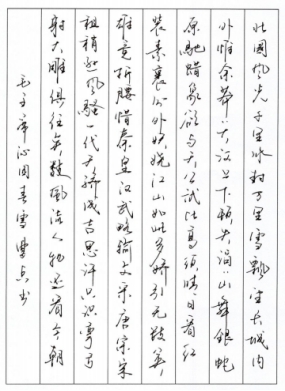 北國風光千里冰封万里雪飘望长城内
外惟余莽莽大河上下顿失滔滔山舞银蛇
原驰蜡象欲与天公试比高须晴日看红
装素裹分外妖娆江山如此多娇引无数英
雄竞折腰惜秦皇汉武略输文采唐宗宋
祖稍逊风骚一代天骄成吉思汗只识弯弓
射大雕俱往矣数风流人物还看今朝
毛主席沁园春雪